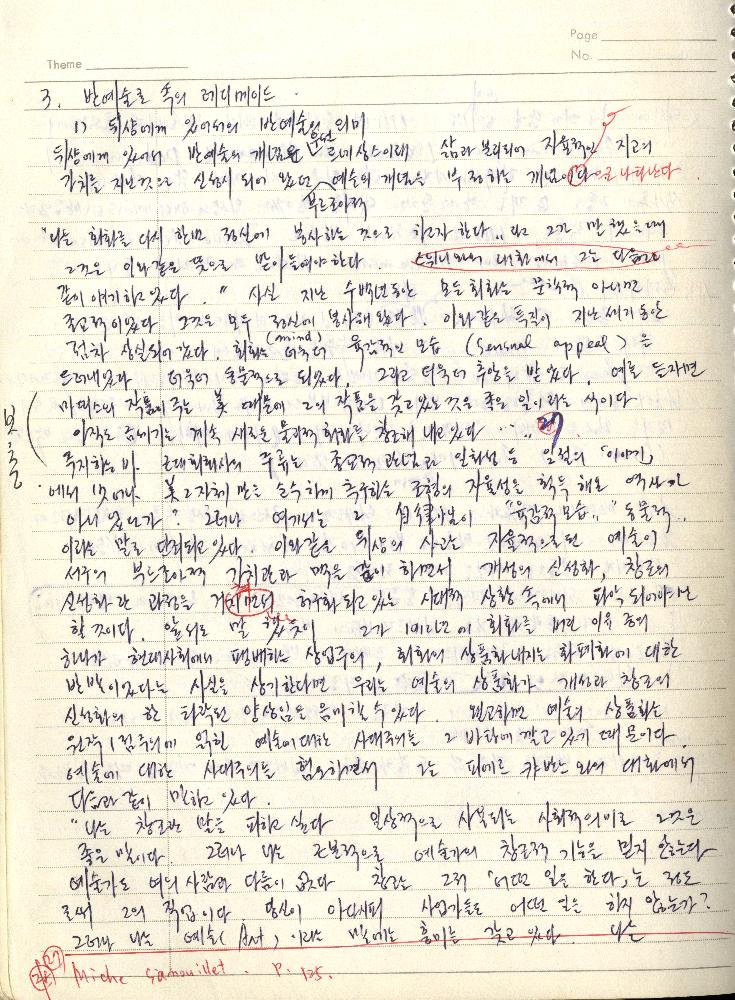 Page
No.
Theme
3. 반예술로 속의 레디메이드.
1) 뒤샹에게 있어서의 반예술의 의미
뒤샹에게 있어서 반예술의 개념은 우선 르네상스이래 삶과 분리되어 자율적인 지고의
가치를 지닌 것으로 신성시 되어 왔던 예술의 개념을 부정하는 개념이다 으로 나타난다.
부르조아적
"나는 회화를 다시 한번 정신에 봉사하는 것으로 하고자 한다" 라고 그가 말했을 때
그것은 이와 같은 뜻으로 받아들여야 한다 스위니와의 대화에서 그는 다음과
같이 얘기하고 있다. " 사실 지난 수백년동안 모든 회화는 문학적 아니면
종교적이었다 그것은 모두 정신에 봉사해 왔다. 이와 같은 특질이 지난 세기 동안
(mind)
점차 상실되어 갔다. 회화는 더욱더 육감적인 모습 (Sensual appeal) 을
드러내었다 더욱더 동물적으로 되었다. 그리고 더욱더 추앙을 받았다. 예를 들자면
마티스의 작품이 주는 美 때문에 그의 작품을 갖고 있는 것은 좋은 일이라는 식이다
아직도 금세기는 계속 새로운 물리적 회화를 창조해 내고 있다 …" 27
보들
주지하는 바, 근대회화사의 주류는 종교적 관념과 일화성 등 일절의 '이야기'
에서 벗어나 美 그 자체 만을 순수하게 추구하는 조형의 자율성을 획득 해온 역사가
아니 었던가? 그러나 여기서는 그 "육감적 모습", "동물적"
이라는 말로 단죄되고 있다 이와같은 뒤샹의 사고는 자율적으로 된 예술이
서구의 부르조아적 가치관과 맥을 같이 하면서 개성의 신성화, 창조의
신성화란 과정을 거치면서 허구화 되고 있는 시대적 상황 속에서 파악 되어야만
할 것이다. 앞서도 말 했듯이 그가 1912년에 회화를 버린 이유 중의
하나가 현대사회에서 팽배하는 상업주의, 회화의 상품화 내지는 화폐화에 대한
반발이었다는 사실을 상기한다면 우리는 예술의 상품화가 개성과 창조의
신성화의 한 타락된 양상임을 음미할 수 있다. 왜냐하면 예술의 상품화는
원작 1점주의에 입힌 예술에 대한 사대주의를 그 바탕에 깔고 있기 때문이다.
예술에 대한 사대주의를 혐오하면서 그는 피에르 캬반느 와의 대화에서
다음과 같이 말하고 있다.
"나는 창조란 말을 피하고 싶다 일상적으로 사용되는 사회적의미로 그것은
좋은 말이다. 그러나 나는 근본적으로 예술가의 창조적 기능을 믿지 않는다
예술가도 여느 사람과 다름이 없다 창조는 그저 '어떤 일을 한다'는 정도
로써 그의 직업이다. 당신이 아다시피 사업가들도 어떤 일을 하지 않는가?
그러나 나는 예술(Art) 이라는 말에는 흥미를 갖고 있다 나는
27
Miche Sanouillet. P. 125.